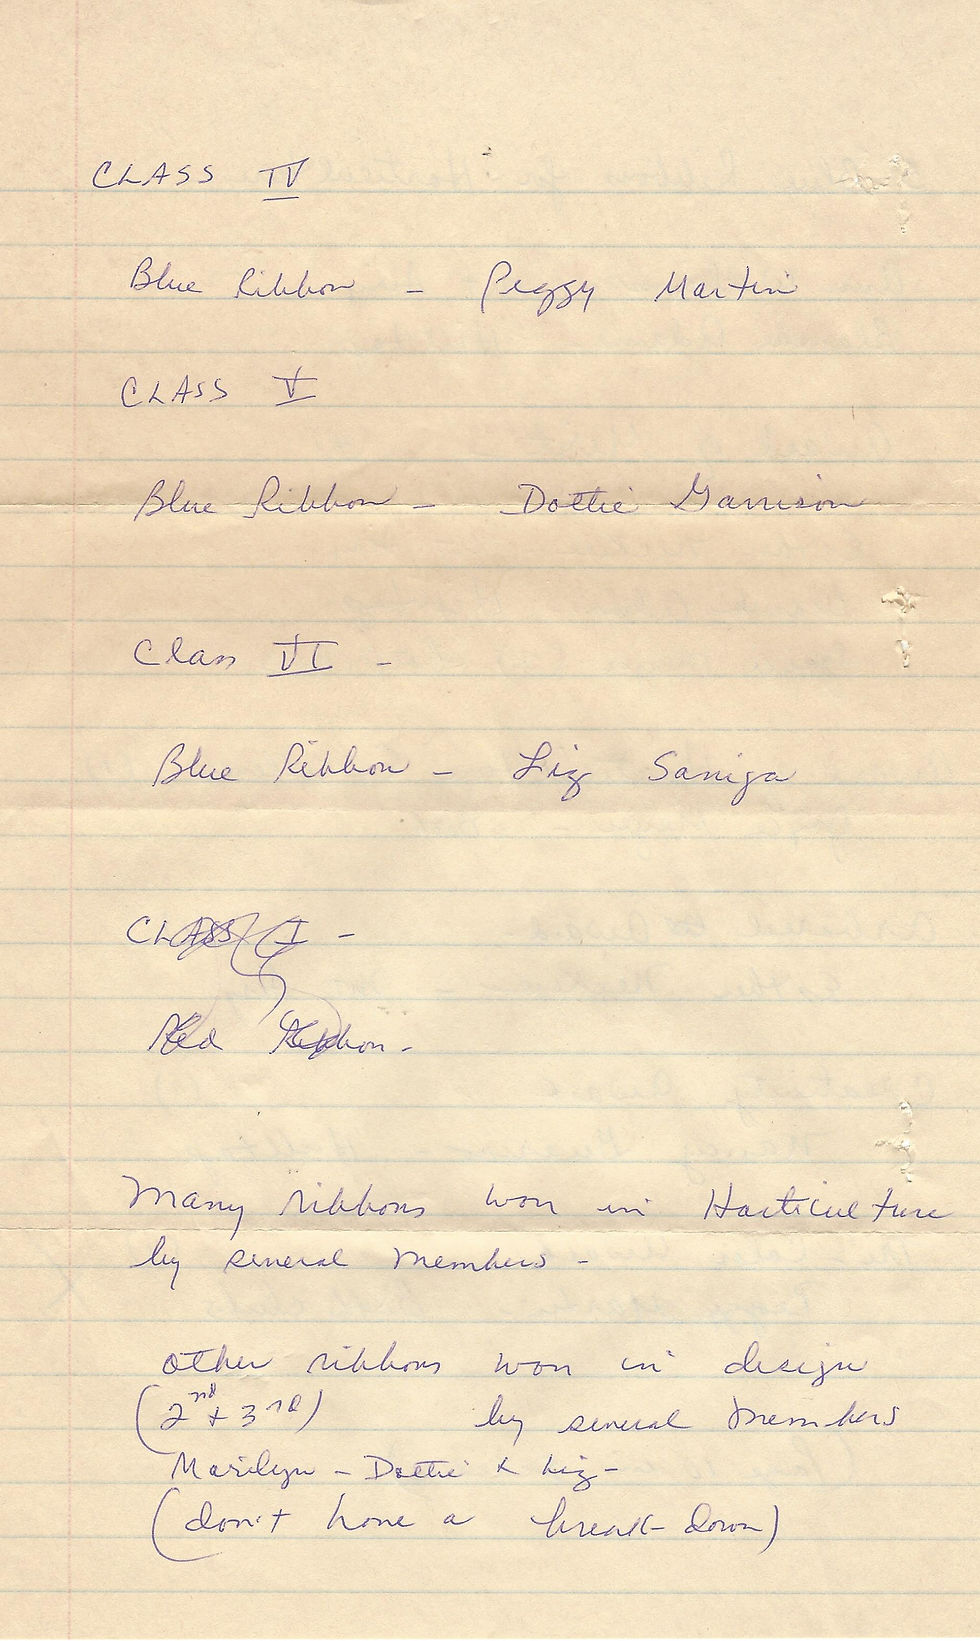 CLASS IV
Blue Ribbon - Peggy Martin
CLASS V
Blue Ribbon - Dottie Garrison
Class VI -
Blue Ribbon - Liz Saniga
CLASS I -
Red Ribbon -
Many ribbons won in Horticulture
by several members -
other ribbons won in design
(2nd + 3rd) by several members
Marilyn - Dottie & Liz -
(don't have a break-down)